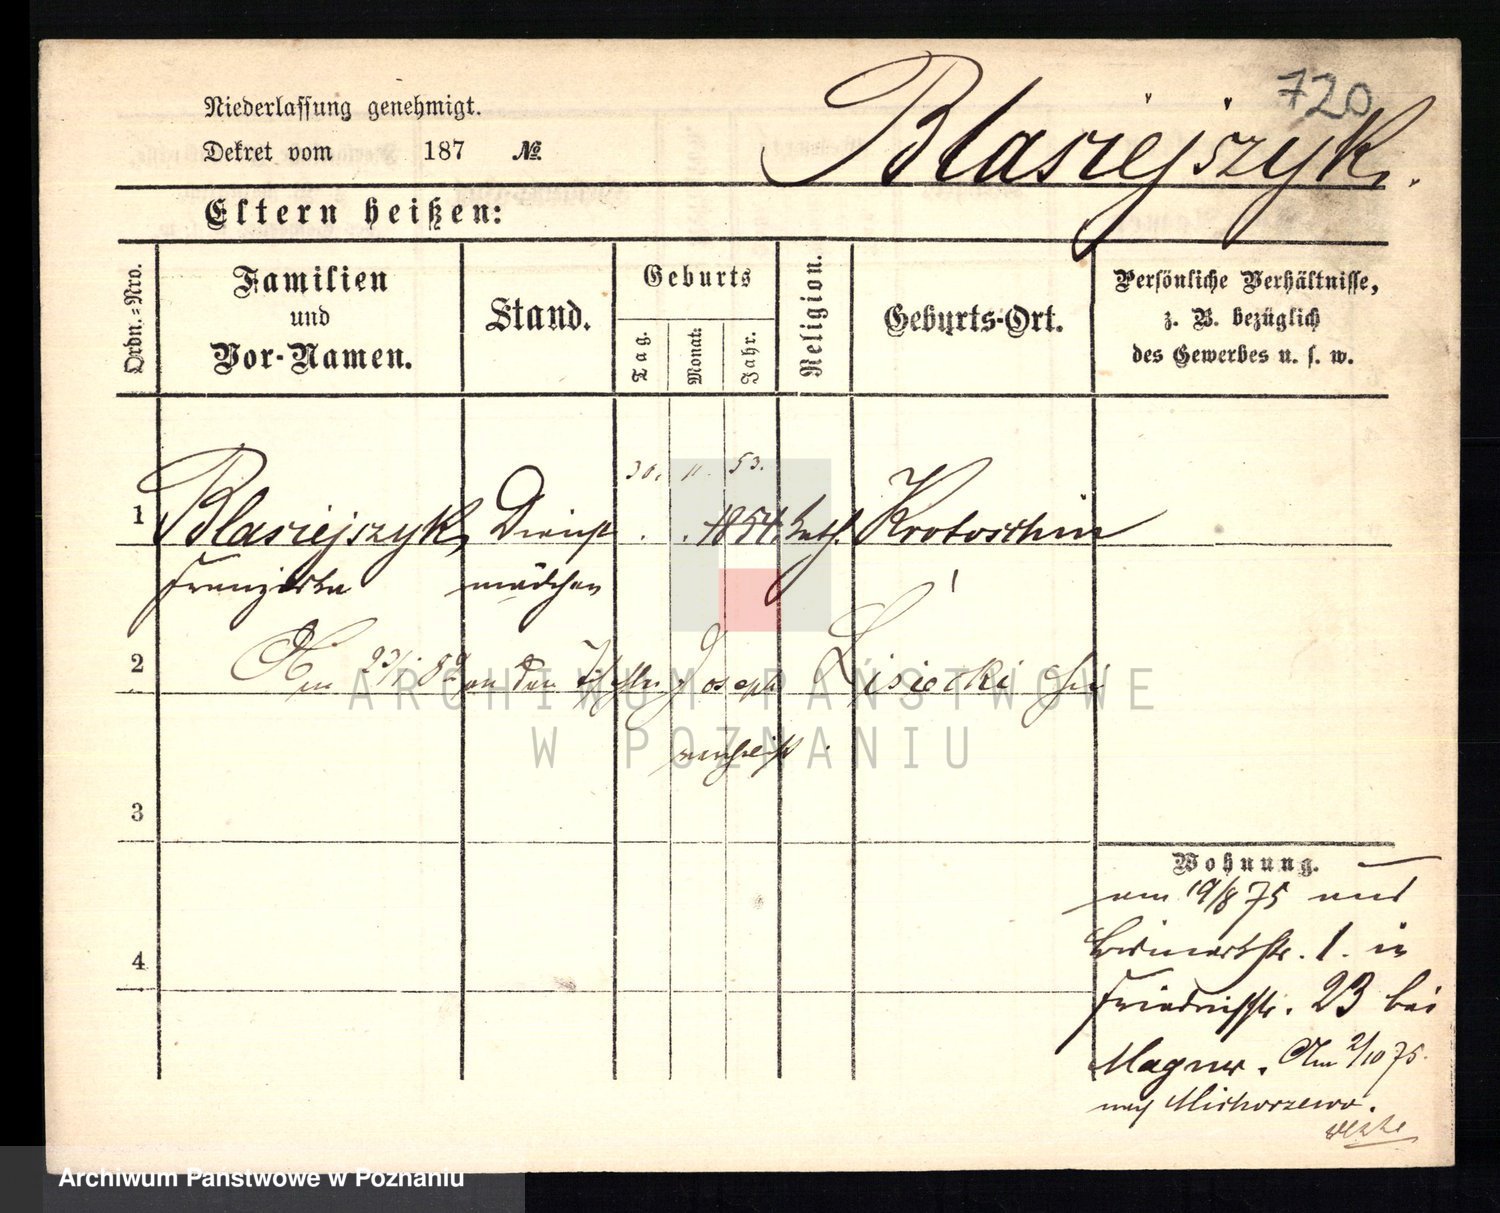 720
Niederlassung genehmigt.
Dekret vom 187 №
Blasiejszyk.
Eltern heißen:
Ordn.-Nro.
Familien und Vor-Namen.
Stand.
Geburts
Tag.
Monat.
Jahr.
Religion.
Geburts-Ort.
Persönliche Verhältnisse,
z. B. bezüglich
des Gewerbes u. s. w.
30. 11. 53.
1 Blasiejszyk, Dienst 1854. kath. Krotoschin
Franziska mädchen
2 Am 23/1 82 an den Joseph Lisiecki
verheir.
3
4
Wohnung.
am 19/8 75 aus
Bismarkstr. 1. in
Friedrichstr. 23 bei
Magner. Am 2/10 75.
nach Michorzewo.
ARCHIWUM PAŃSTWOWE
W POZNANIU
Archiwum Państwowe w Poznaniu